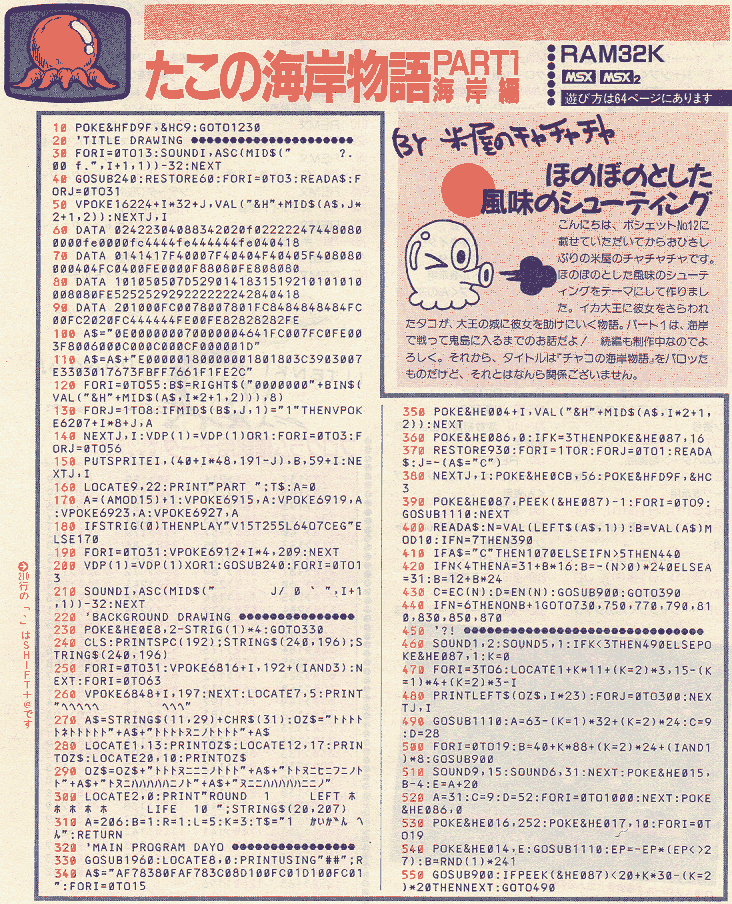 たこの海岸物語
PART1
海岸編
RAM32K
MSX MSX2
遊び方は64ページにあります
By 米屋のチャチャチャ
ほのぼのとした
風味のシューティング
こんにちは、ポシェットNo12に
載せていただいてからおひさし
ぶりの米屋のチャチャチャです。
ほのぼのとした風味のシューテ
ィングをテーマにして作りまし
た。イカ大王に彼女をさらわれ
たタコが、大王の城に彼女を助けにいく物語。パート1は、海岸
で戦って鬼島に入るまでのお話だよ！　続編も制作中なのでよ
ろしく。それから、タイトルは『チャコの海岸物語』をパロッた
ものだけど、それとはなんら関係ございません。
10 POKE&HFD9F,&HC9:GOTO1230
20 'TITLE DRAWING ●●●●●●●●●●●●●●●●●●●●
30 FORI=0TO13:SOUNDI,ASC(MID$("      ?.
00 f.",I+1,1))-32:NEXT
40 GOSUB240:RESTORE60:FORI=0TO3:READA$:F
ORJ=0TO31
50 VPOKE16224+I*32+J,VAL("&H"+MID$(A$,J*
2+1,2)):NEXTJ,I
60 DATA 024223040883 4202 0f02222247448080
0000fe0000fc4444fe444444fe040418
70 DATA 0141417F40007F40404F40405F408080
000404FC0400FE0000F88080FE808080
80 DATA 101050507D5290141831519210101010
008080FE52525292922222224 2840418
90 DATA 201000FC0078007801FC8484848484FC
00FC2020FC444444FE00FE82828282FE
100 A$="0E00000007000000464 1FC007FC0FE00
3F8006000C000C000CF000001D"
110 A$=A$+"E0000018000000180180 3C3903007
E3303017673FBFF7661F1FE2C"
120 FORI=0TO55:B$=RIGHT$("0000000"+BIN$(
VAL("&H"+MID$(A$,I*2+1,2))),8)
130 FORJ=1TO8:IFMID$(B$,J,1)="1"THENVPOK
E6207+I*8+J,A
140 NEXTJ,I:VDP(1)=VDP(1)OR1:FORI=0TO3:F
ORJ=0TO56
150 PUTSPRITEI,(40+I*48,191-J),B,59+I:NE
XTJ,I
160 LOCATE9,22:PRINT"PART ";T$:A=0
170 A=(AMOD15)+1:VPOKE6915,A:VPOKE6919,A
:VPOKE6923,A:VPOKE6927,A
180 IFSTRIG(0)THENPLAY"V15T255L64O7CEG"E
LSE170
190 FORI=0TO31:VPOKE6912+I*4,209:NEXT
200 VDP(1)=VDP(1)XOR1:GOSUB240:FORI=0TO1
3
210 SOUNDI,ASC(MID$("       J/ 0 ` ",I+1
,1))-32:NEXT
220 'BACKGROUND DRAWING ●●●●●●●●●●●●●●
230 POKE&HE0E8,2-STRIG(1)*4:GOTO330
240 CLS:PRINTSPC(192);STRING$(240,196);S
TRING$(240,196)
250 FORI=0TO31:VPOKE6816+I,192+(IAND3):N
EXT:FORI=0TO63
260 VPOKE6848+I,197:NEXT:LOCATE7,5:PRINT
"ヘヘヘヘヘ          ヘヘヘ"
270 A$=STRING$(11,29)+CHR$(31):OZ$="トトトト
300 LOCATE2,0:PRINT"ROUND   1    LEFT ホ
ホ ホ ホ ホ    LIFE  10 ";STRING$(20,207)
310 A=206:B=1:R=1:L=5:K=3:T$="1
320 'MAIN PROGRAM DAYO ●●●●●●●●●●●●●●
330 GOSUB1960:LOCATE8,0:PRINTUSING"##";R
340 A$="AF78380FAF783C08D100FC01D100FC01
":FORI=0TO15
350 POKE&HE004+I,VAL("&H"+MID$(A$,I*2+1,
2)):NEXT
360 POKE&HE086,0:IFK=3THENPOKE&HE087,16
370 RESTORE930:FORI=1TOR:FORJ=0TO1:READA
$:J=-(A$="C")
380 NEXTJ,I:POKE&HE0CB,56:POKE&HFD9F,&HC
3
390 POKE&HE087,PEEK(&HE087)-1:FORI=0TO9:
GOSUB1110:NEXT
400 READA$:N=VAL(LEFT$(A$,1)):B=VAL(A$)M
OD10:IFN=7THEN390
410 IFA$="C"THEN1070ELSEIFN>5THEN440
420 IFN<4THENA=31+B*16:B=-(N>0)*240ELSEA
=31:B=12+B*24
430 C=EC(N):D=EN(N):GOSUB900:GOTO390
440 IFN=6THENONB+1GOTO730,750,770,790,81
0,830,850,870
450 '?! ●●●●●●●●●●●●●●●●●●●●●●●●●●●●
460 SOUND1,2:SOUND5,1:IFK<3THEN490ELSEPO
KE&HE087,1:K=0
470 FORI=3TO6:LOCATE1+K*11+(K=2)*3,15-(K
=1)*4+(K=2)*3-I
480 PRINTLEFT$(OZ$,I*23):FORJ=0TO300:NEX
TJ,I
490 GOSUB1110:A=63-(K=1)*32+(K=2)*24:C=9
:D=28
500 FORI=0TO19:B=40+K*88+(K=2)*24+(IAND1
)*8:GOSUB900
510 SOUND9,15:SOUND6,31:NEXT:POKE&HE015,
B-4:E=A+20
520 A=31:C=9:D=52:FORI=0TO1000:NEXT:POKE
&HE086,0
530 POKE&HE016,252:POKE&HE017,10:FORI=0T
O19
540 POKE&HE014,E:GOSUB1110:EP=-EP*(EP<>2
7):B=RND(1)*241
550 GOSUB900:IFPEEK(&HE087)<20+K*30-(K=2
)*20THENNEXT:GOTO490
210行の「`」はSHIFT+@です